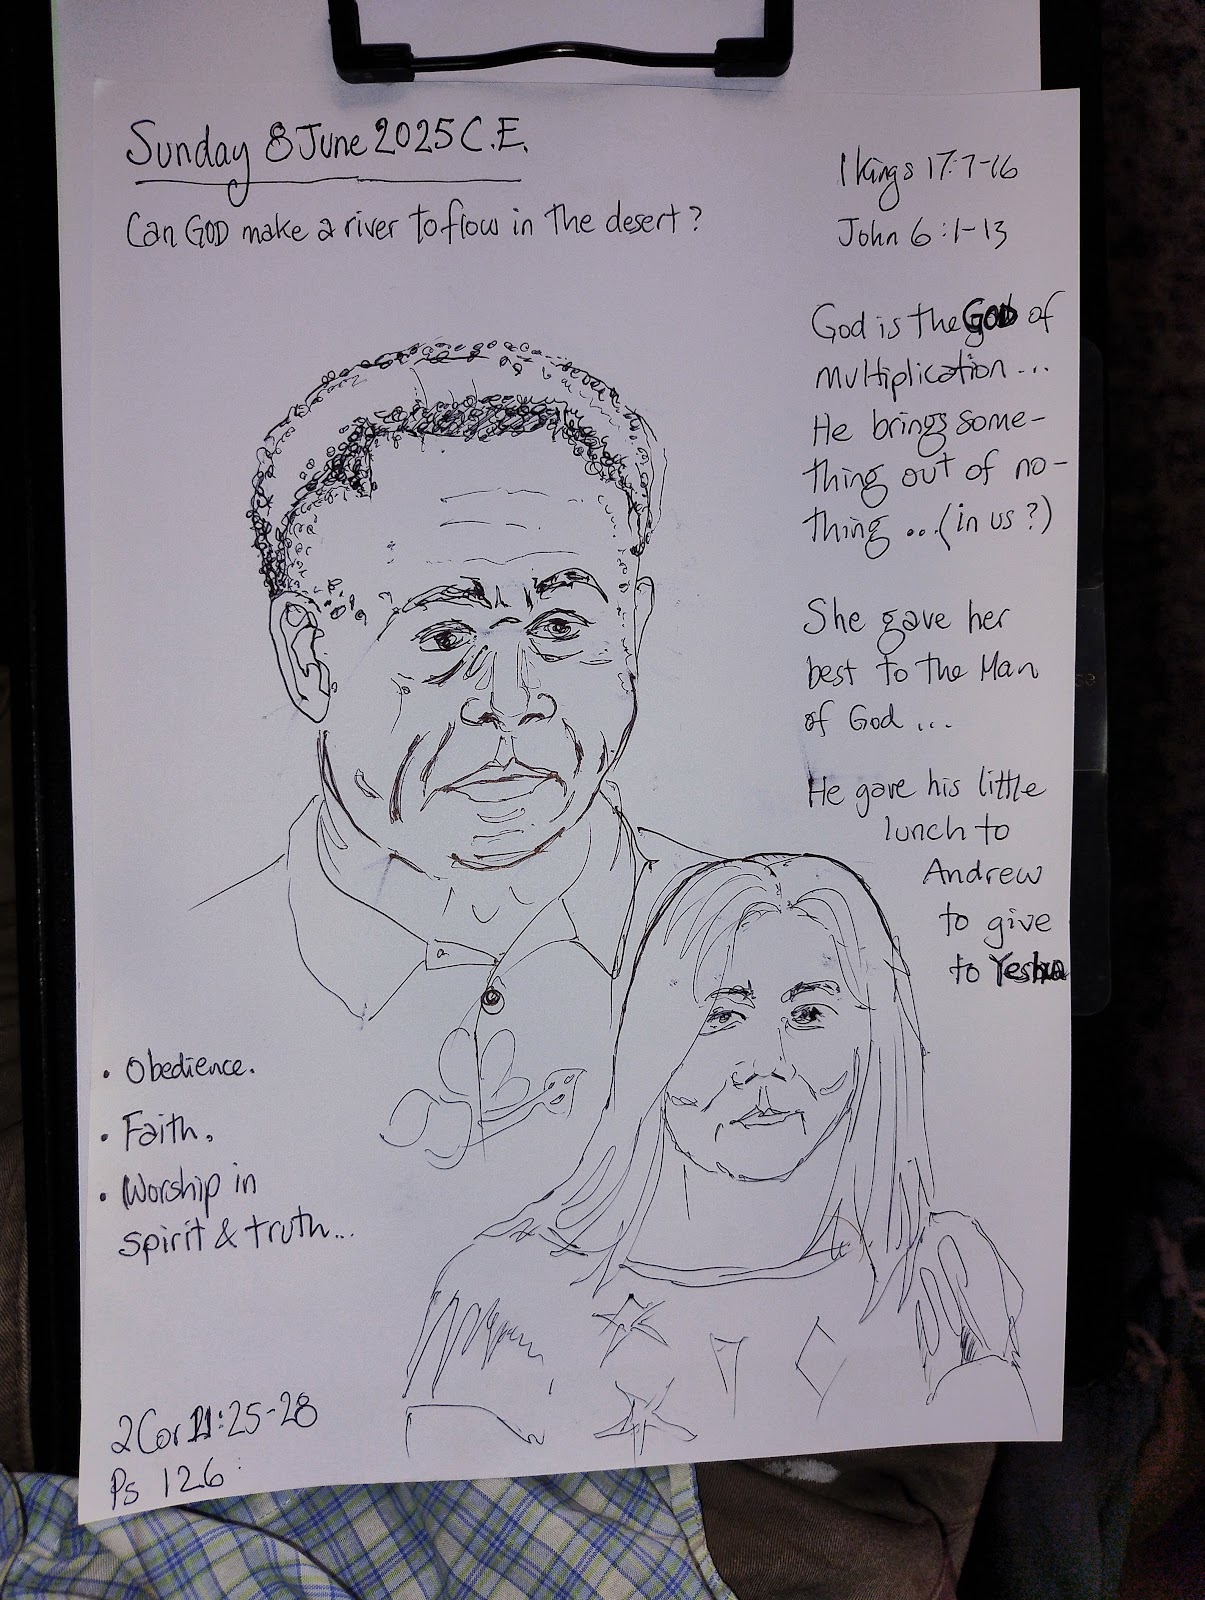 Sunday 8 June 2025 C.E.
Can GOD make a river to flow in the desert?
1 Kings 17:7-16
John 6:1-13
God is the GOD of
multiplication...
He brings some-
thing out of no-
thing ...(in us?)
She gave her
best to the Man
of God ...
He gave his little
lunch to
Andrew
to give
to Yeshua
• Obedience.
• Faith.
• Worship in
spirit & truth...
2 Cor 11:25-28
Ps 126: